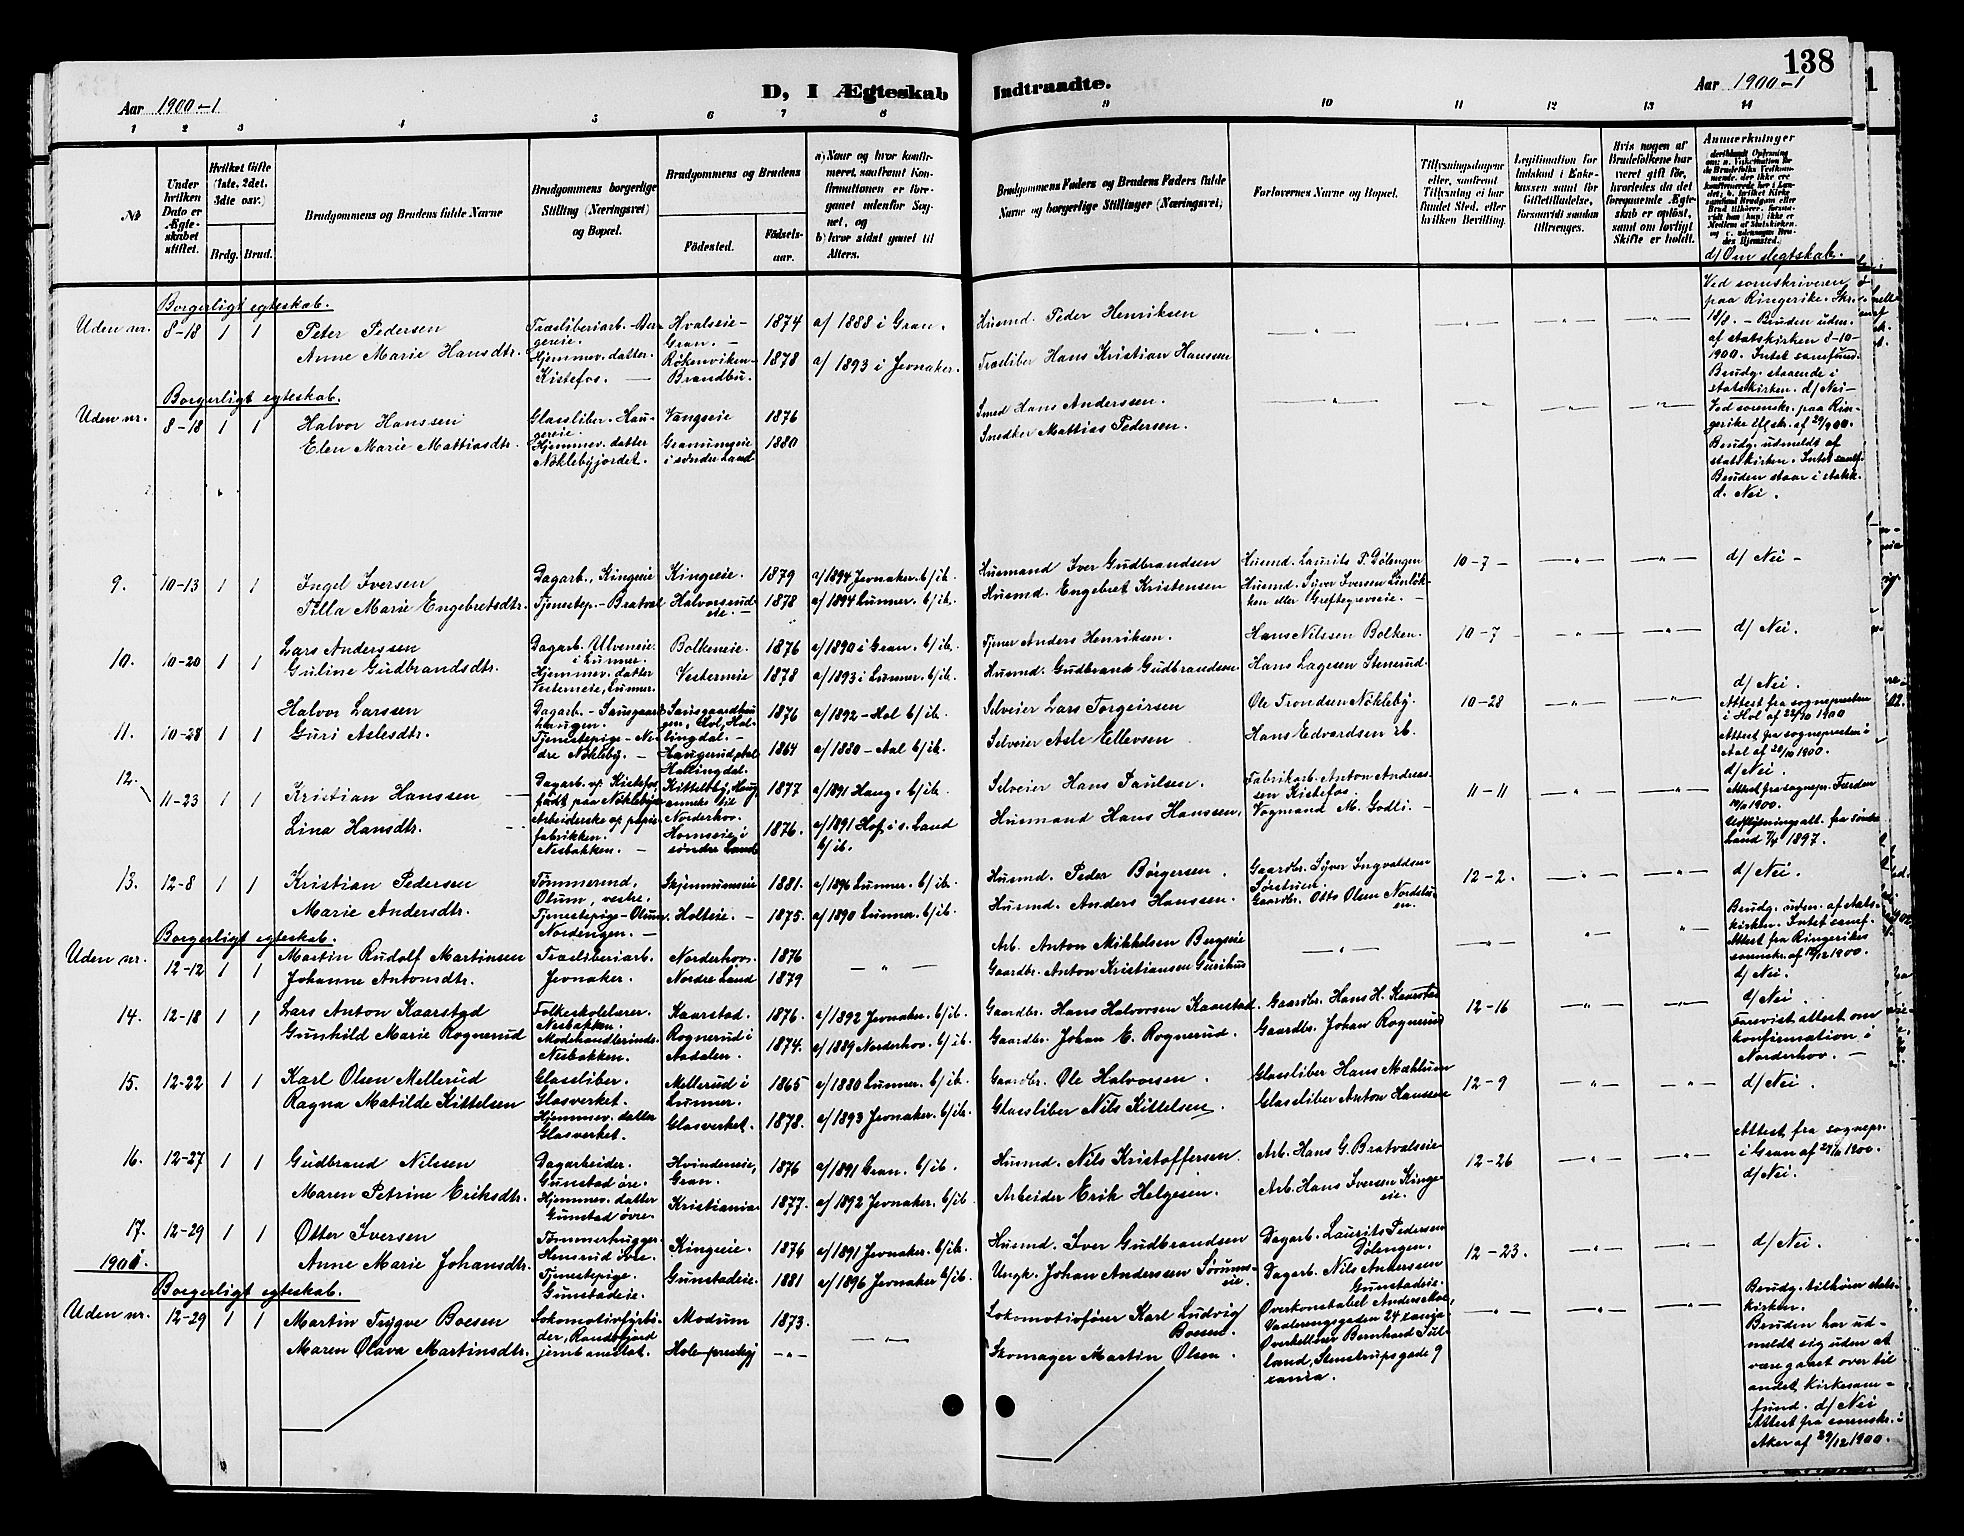 138
D, I Ægteskab Indtraadte.
Aar 1900-1
Aar 1900-1
1 2 3 4 5 6 7 8 9 10 11 12 13 14
№
Under hvilken Dato er Ægteskabet stiftet.
Hvilket Gifte (1ste, 2det, 3die osv.)
Brdg. Brud.
Brudgommens og Brudens fulde Navne
Brudgommens borgerlige Stilling (Næringsvei) og Bopæl.
Brudgommens og Brudens
Fødested.
Fødselsaar.
a) Naar og hvor konfirmeret, samt om Konfirmationen er foregaaet udenfor Sognet, og
b) hvor sidst gaaet til Alters.
Brudgommens Faders og Brudens Faders fulde Navne og borgerlige Stillinger (Næringsvei)
Forlovernes Navne og Bopæl.
Tillysningsdagene eller, saafremt Tillysning ei har fundet Sted, da hvilken Bevilling.
Legitimation for Indskud i Enkekassen samt for Giftetilladelse, forsaavidt saadan tiltrænges.
Hvis nogen af Brudefolkene har været gift før, hvorledes da det foregaaende Ægteskab er opløst, samt om lovligt Skifte er holdt.
Anmerkninger
d/ Om slegtskab.
Borgerligt egteskab.
Uden nr. 8-18 1 1 Peter Pedersen
Træsliberiarb. Hvalseie - Gran. - 1874 a/ 1888 i Gran. Husmd. Peder Henriksen
Anne Marie Hansdtr. Hjemmev. datter. Kistefos. - Røkenviken - Brandbu. 1878 a/ 1893 i Jevnaker. Træsliber Hans Kristian Hansen
Ved sorenskriveren paa Ringerike. Skr. 18/8. - Bruden uden-
af statskirken 8-10-
1900. Intet samfund.
Brudg. staaende i
statskirken. d/ Nei -
Borgerligt egteskab.
Uden nr. 8-18 1 1 Halvor Hanssen
Glassliber. Haugereie. Vangseie 1876 Smed Hans Anderssen.
Elen Marie Mattiasdtr. Hjemmev. datter Nøklebyjordet. Granumseie i søndre Land 1880 Snedker Mattias Pedersen.
Ved sorenskr. paa Ringerike
Brudg. udmeldt af
statskirken. Intet samf.
Bruden staar i statsk.
d. Nei.
9. 10-13 1 1 Ingel Iversen
Dagarb., Kingeeie Kingeeie. 1879 a/ 1894 Jevnaker. b/ ib. Husmand Iver Gudbrandsen Husmd. Laurits P. Dølengen 10-7 - d/ Nei -
Tilla Marie Engebretsdtr. Tjenestep. - Bratval Halvorsrudeie. - 1878 a/ 1894 Lunner. b/ ib. Husmd. Engebret Kristensen Husmd. Syver Iversen
ken eller Greftegreveie. -
10. 10-20 1 1 Lars Anderssen
Dagarb. Ulveneie i Lunner. Bolkeneie. 1876 a/ 1890 i Gran. b/ ib. Tjener Anders Henriksen. Hans Nilssen Bolken. 10-7 d/ Nei.
Guline Gudbrandsdtr. Hjemmev. datter Vesterneie, Lunner. Vesterneie 1878 a/ 1893 i Lunner. b/ ib. Husmd. Gudbrand Gudbrandsen. Hans Lagesen Stenerud.
11. 10-28 1 1 Halvor Larssen
Dagarb. - Sausgaardhaugen. Sausgaardhaugen, Hol, Hallingdal. - 1876 a/ 1892 - Hol b/ ib. Selveier Lars Torgeirsen Ole Trondsen Nøkleby. 10-28
Guri Aslesdtr. Tjenestepige - Nedre Nøkleby. - Haugerud, Aal Hallingdal. 1864 a/ 1880 - Aal b/ ib. Selveier Asle Ellevsen Hans Edvardsen ib.
d/ Nei.
Attest fra sognepresten
i Hol af 22/10 1900
Attest fra sognepresten i
Aal af 20/10 1900.
12. 11-23 1 1 Kristian Hanssen
Dagarb. op. Kistefos, født paa Nøklebyeie Kittelsby, Haug anneks til Norderhov. 1877 a/ 1891 Haug. b/ ib. Selveier Hans Paulsen. Fabrikarb. Anton Andreassen Kistefos. 11-11
Lina Hansdtr. Arbeiderske op. papirfabrikken. Nesbakken. - Hornseie i søndre Land 1876. a/ 1891 Hof, i s. Land b/ ib. Husmand Hans Hanssen, Vogmand M. Godli. -
d/ Nei.
Attest fra sognepr.
1900.
Udflytningsatt. fra søndre
Land 7/4 1897.
13. 12-8 1 1 Kristian Pedersen
Tømmermd, Olum, vestre. Skjenmumseie 1881. a/ 1896 Lunner. b/ ib. Husmd. Peder Børgersen. Gaardbr. Syver Ingvaldsen Sørstuen. 12-2. d/ Nei.
Marie Andersdtr. Tjenestepige - Olum, Nordengen. - Holteie. - 1875. a/ 1890 Lunner. b/ ib. Husmd. Anders Hanssen. Gaardbr. Otto Olsen Nordstuen.
Borgerligt egteskab.
Uden nr. 12-12 1 1 Martin Rudolf Martinsen
Træsliberiarb. Jevnaker. Norderhov. 1876 Arb. Anton Mikkelsen Bergseie
Johanne Antonsdtr. Nordre Land 1879 Gaardbr. Anton Kristiansen Gurihus
Brudg. uden. af statskirken.
Intet samf.
Attest fra Ringerikes
sorenskr. af 12/12 1900.
d/ Nei.
14. 12-18 1 1 Lars Anton Kaarstad
Folkeskolelærer. Nesbakken. Kaarstad. 1876. a/ 1892 Jevnaker. b/ ib. Gaardbr. Hans Halvorsen Kaarstad. Gaardbr. Hans H. Kaarstad 12-16
Gunhild Marie Rognerud Modehandlerinde. Nesbakken. Rognerud i Aadalen. 1874. a/ 1889 Norderhov. b/ ib. Gaardbr. Johan E. Rognerud. Gaardbr. Johan Rognerud
d/ Nei.
Forevist attest om
konfirmation i
Norderhov. -
15. 12-22 1 1 Karl Olsen Mellerud
Glassliber. Glasverket. Mellerud i Lunner. 1865 a/ 1880 Lunner. b/ ib. Gaardbr. Ole Halvorsen. Glassliber Hans Mæhlum 12-9 d/ Nei.
Ragna Matilde Kittelsen Hjemmev. datter Glasverket. Glasverket. 1878. a/ 1893 Jevnaker. b/ ib. Glassliber Nils Kittelsen. Glassliber Anton Hanssen
16. 12-27 1 1 Gudbrand Nilsen
Dagarbeider. Gunstad øvre. Hvindeneie, Gran. 1876 a/ 1891 Gran. b/ ib. Husmd. Nils Kristoffersen. Arb. Hans G. Bratvalseie 12-26
Maren Petrine Eriksdtr. Hjemmev. datter Gunstad øvre. Kristiania 1877. a/ 1892 Jevnaker. b/ ib. Arbeider Erik Helgesen. Arb. Hans Iversen Kingeeie.
Attest fra sognepr.
i Gran af 1900.
d/ Nei.
17. 12-29 1 1 Otter Iversen
Tømmerhugger. Hensrud øvre. Kingeeie. 1876 a/ 1891 Jevnaker. b/ ib. Husmd. Iver Gudbrandsen Dagarb. Laurits Pedersen Dølengen. 12-23. d/ Nei.
Anne Marie Johansdtr. Tjenestepige. Gunstadeie. Gunstadeie. 1881 a/ 1896 Jevnaker b/ ib. Ungk. Johan Anderssen Sørumseie. Dagarb. Nils Anderssen Gunstadeie.
1900.
Borgerligt egteskab.
Uden nr. 12-29 1 1 Martin Trygve Boesen
Lokomotivfyrbøder, Randsfjord jernbanestat. Modum 1873. Lokomotivfører Karl Ludvig Boesen. Overkonstabel Anders
Vaalerengsgaden 24
Maren Olava Martinsdtr. Hole præstegj - " - Skomager Martin Olsen. Overkelner Bernhard
land, Stenstrupsgade 9
xania.
Brudg. tilhører statskirken.
Bruden har udmeldt
sig uden at
være gaaet over til
andet kirkesamfund.
d/ Nei
Attest fra sorenskr. i
Aker af 29/12 1900.